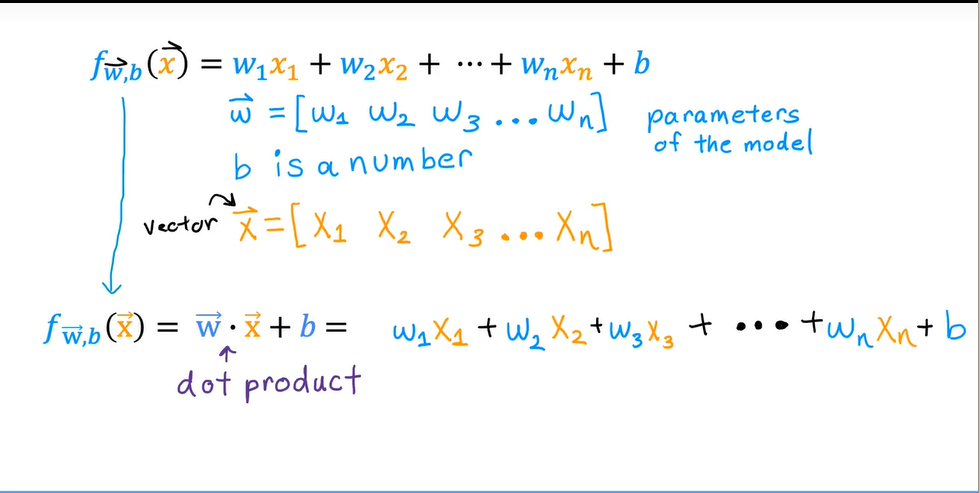 f_{w⃗,b}(x⃗) = w₁x₁ + w₂x₂ + ⋯ + wₙxₙ + b
w⃗ = [w₁ w₂ w₃ ... wₙ] parameters of the model
b is a number
vector x⃗ = [x₁ x₂ x₃ ... xₙ]
f_{w⃗,b}(x⃗) = w⃗ · x⃗ + b = w₁x₁ + w₂x₂ + w₃x₃ + ... + wₙxₙ + b
dot product